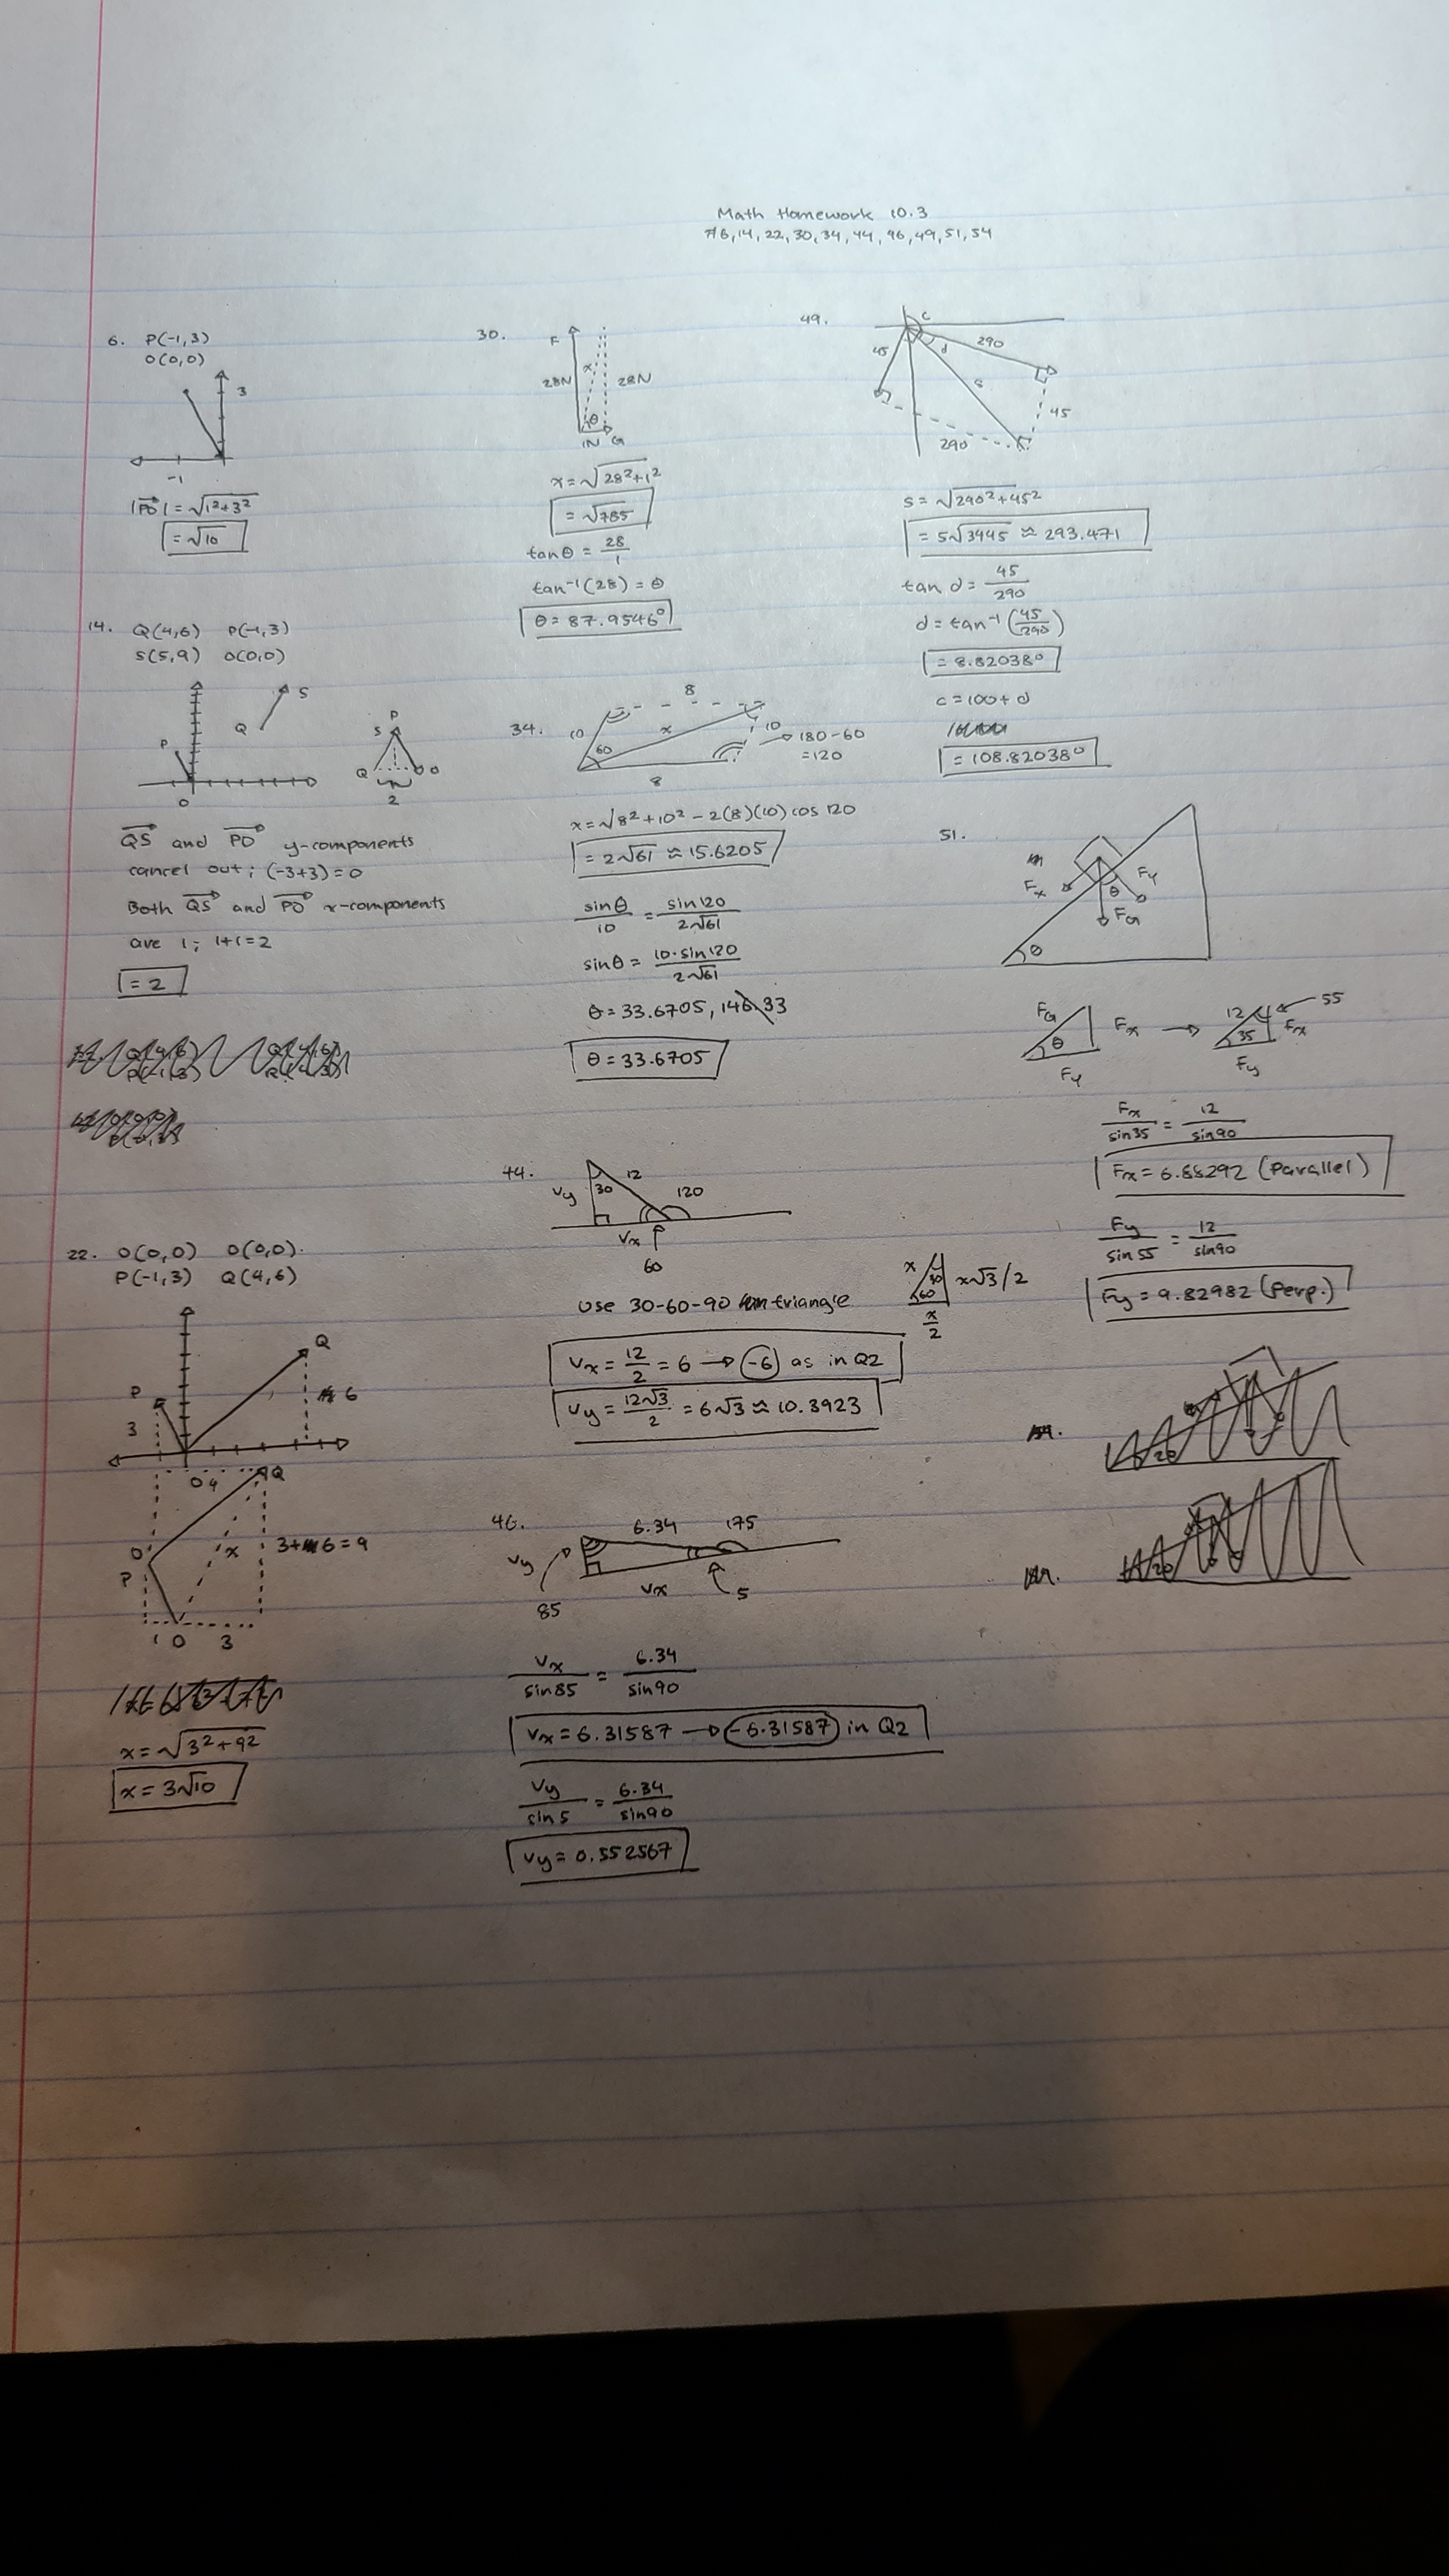 Math Homework 10.3
#6,14,22,30,34,44,46,49,51,54
6. P(-1,3)
O(0,0)
3
-1
|PO| = √1²+3²
= √10
14. Q(4,6) P(-1,3)
S(5,9) O(0,0)
S
Q
P
O
P
S
Q
O
2
QS and PO y-components
cancel out; (-3+3)=0
Both QS and PO x-components
are 1; 1+1=2
= 2
22. O(0,0) O(0,0)
P(-1,3) Q(4,6)
Q
P
6
3
O 4
Q
O
P
x
3+6=9
1 O 3
x = √3²+9²
x = 3√10
30.
F
28N
x
28N
θ
1N G
x = √28²+1²
= √785
tanθ = 28/1
tan⁻¹(28) = θ
θ = 87.9546°
34.
8
10
x
60
10
180-60
=120
8
x = √8²+10²-2(8)(10)cos 120
= 2√61 ≈ 15.6205
sinθ/10 = sin120/2√61
sinθ = 10·sin120/2√61
θ = 33.6705, 146.33
θ = 33.6705
44.
Vy
30
12
120
Vx
60
Use 30-60-90 triangle
x
30
60
x√3/2
x/2
Vx = 12/2 = 6 → -6 as in Q2
Vy = 12√3/2 = 6√3 ≈ 10.3923
46.
6.34
175
Vy
Vx
5
85
Vx/sin85 = 6.34/sin90
Vx = 6.31587 → -6.31587 in Q2
Vy/sin5 = 6.34/sin90
Vy = 0.552567
49.
c
45
d
290
s
45
290
s = √290²+45²
= 5√3445 ≈ 293.471
tan d = 45/290
d = tan⁻¹(45/290)
= 8.82038°
c = 100+d
= 108.82038°
51.
Fx
Fy
θ
FG
θ
FG
θ
Fx
Fy
→
12
55
35
Fx
Fy
Fx/sin35 = 12/sin90
Fx = 6.88292 (Parallel)
Fy/sin55 = 12/sin90
Fy = 9.82982 (Perp.)